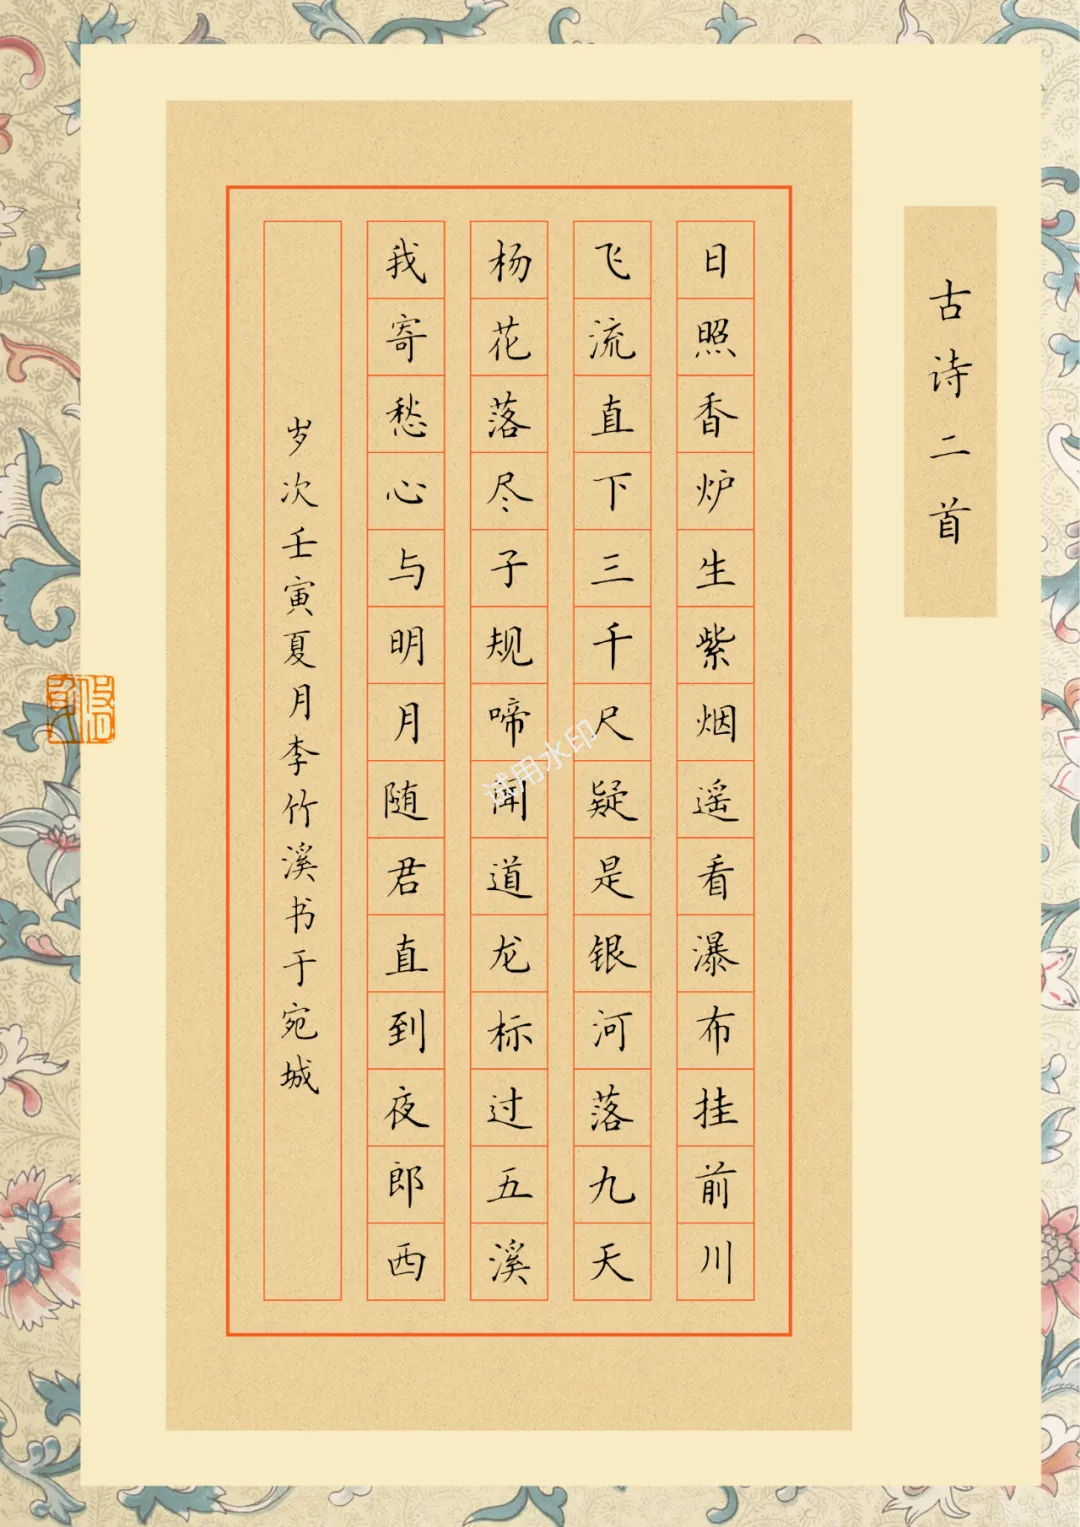 古诗二首
日照香炉生紫烟遥看瀑布挂前川
飞流直下三千尺疑是银河落九天
杨花落尽子规啼闻道龙标过五溪
我寄愁心与明月随君直到夜郎西
岁次壬寅夏月李竹溪书于宛城
试用水印